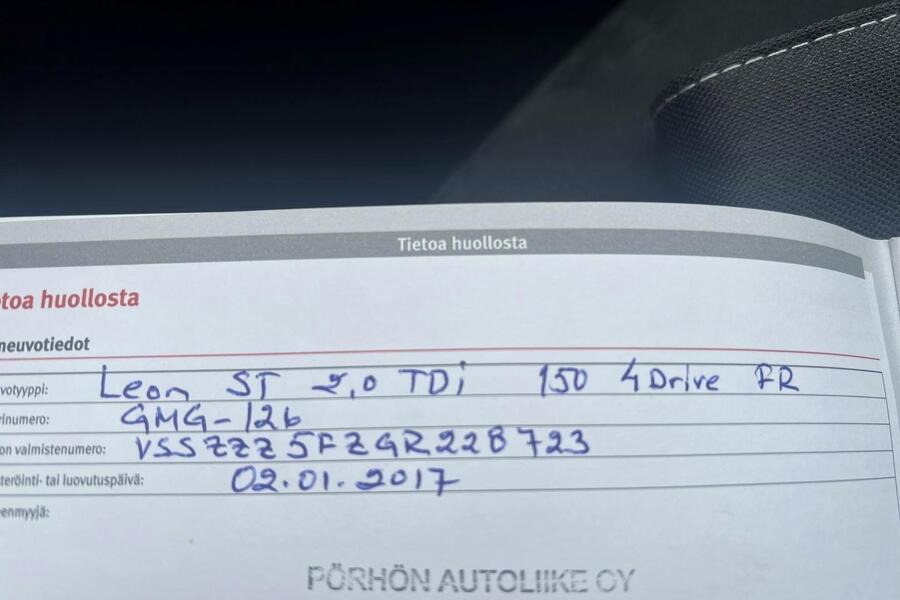 Tietoa huollosta
toa huollosta
neuvotiedot
votyyppi: Leon ST 2,0 TDi 150 4Drive FR
rinumero: GMG-126
on valmistenumero: VSSZZZ5FZGR228723
teröinti- tai luovutuspäivä: 02.01.2017
enmyyjä:
PÖRHÖN AUTOLIIKE OY